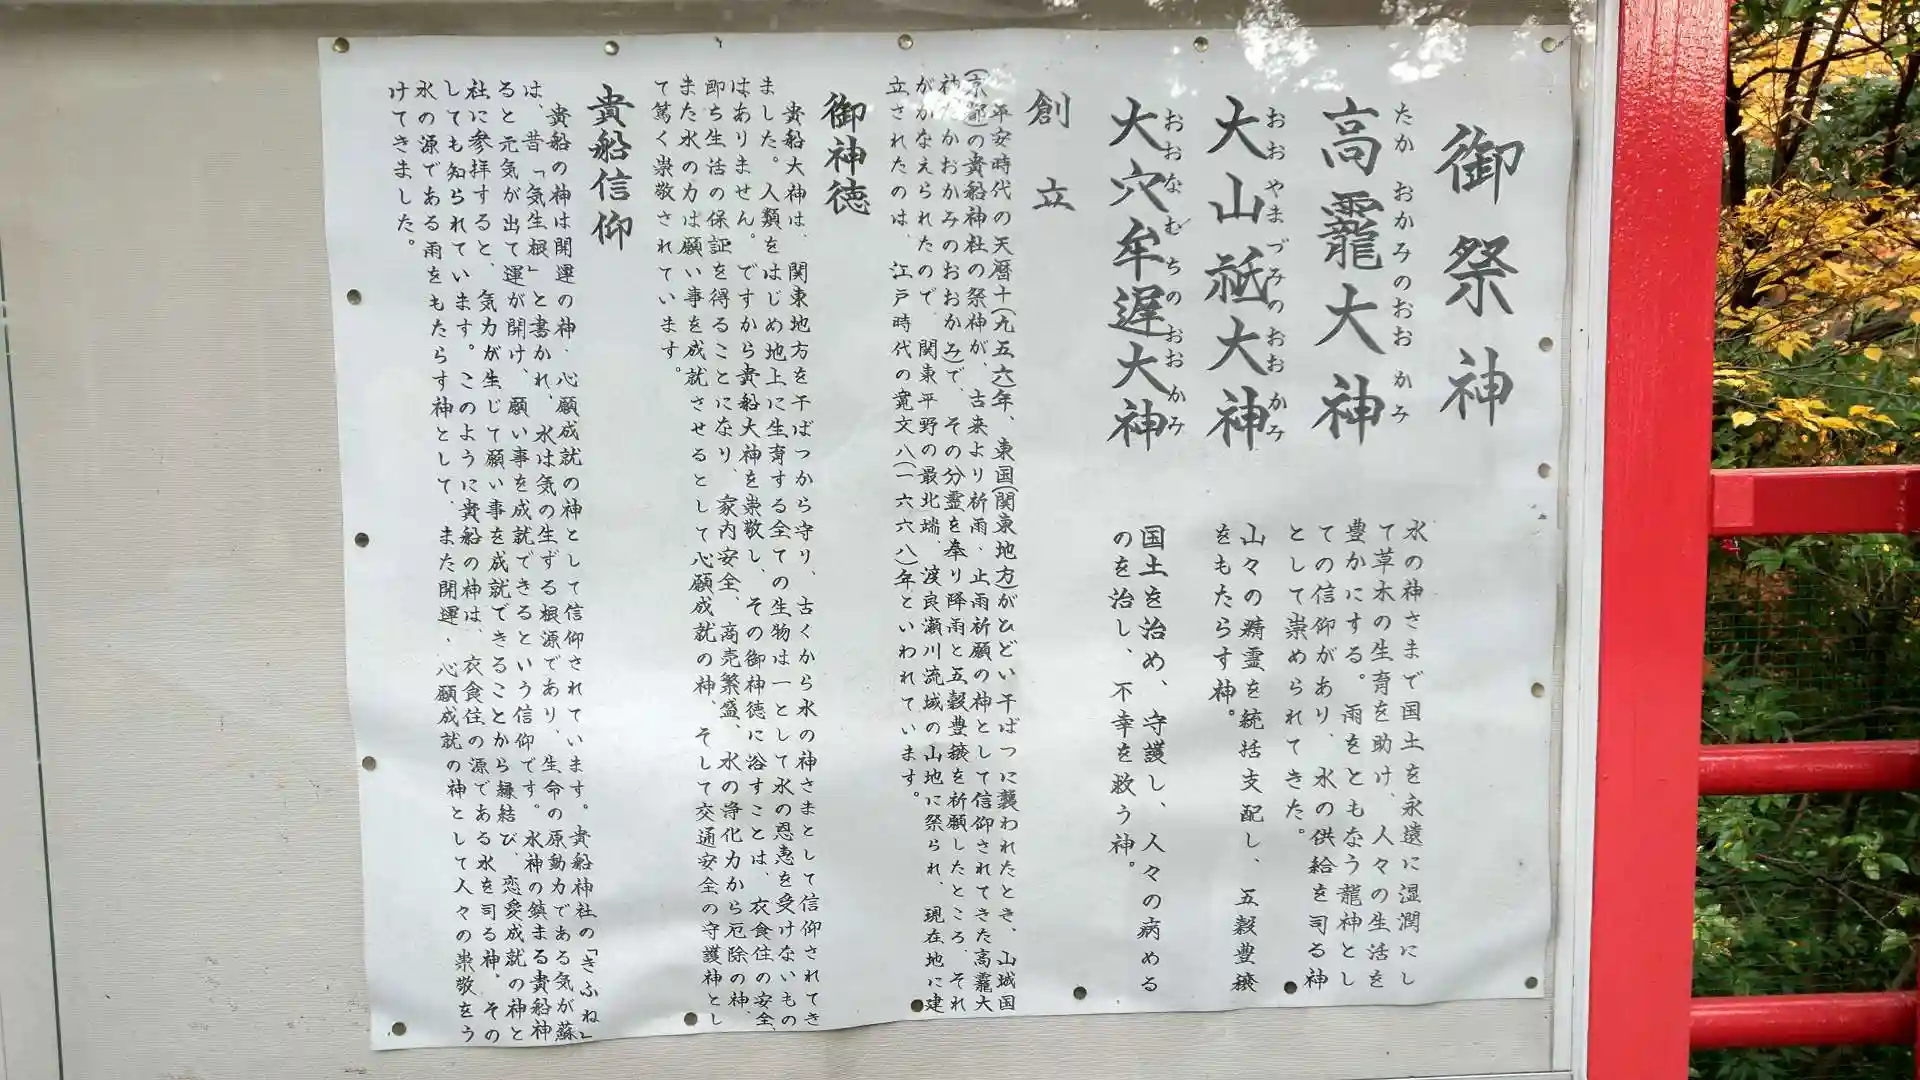 御祭神
高龗大神
たかおかみのおおかみ
水の神さまで国土を永遠に湿潤にし
て草木の生育を助け、人々の生活を
豊かにする。雨をともなう龍神とし
ての信仰があり、水の供給を司る神
として崇められてきた。
大山祗大神
おおやまづみのおおかみ
山々の精霊を統括支配し、五穀豊穣
をもたらす神。
大穴牟遅大神
おおなむちのおおかみ
国土を治め、守護し、人々の病める
のを治し、不幸を救う神。
創立
平安時代の天暦十(九五六)年、東国(関東地方)がひどい干ばつに襲われたとき、山城国
(京都)の貴船神社の祭神が、古来より祈雨・止雨祈願の神として信仰されてきた高龗大
神(たかおかみのおおかみ)で、その分霊を奉り降雨と五穀豊穣を祈願したところ、それ
がかなえられたので、関東平野の最北端、渡良瀬川流域の山地に祭られ、現在地に建
立されたのは、江戸時代の寛文八(一六六八)年といわれています。
御神徳
貴船大神は、関東地方を干ばつから守り、古くから水の神さまとして信仰されてき
ました。人類をはじめ地上に生育する全ての生物は一として水の恩恵を受けないもの
はありません。ですから貴船大神を崇敬し、その御神徳に浴すことは、衣食住の安全、
即ち生活の保証を得ることになり、家内安全、商売繁盛、水の浄化力から厄除の神、
また水の力は願い事を成就させるとして心願成就の神、そして交通安全の守護神とし
て篤く崇敬されています。
貴船信仰
貴船の神は開運の神・心願成就の神として信仰されています。貴船神社の「きふね」
は、昔「気生根」と書かれ、水は気の生ずる根源であり、生命の原動力である気が蘇
ると元気が出て運が開け、願い事を成就できるという信仰です。水神の鎮まる貴船神
社に参拝すると、気力が生じて願い事を成就できることから縁結び、恋愛成就の神と
しても知られています。このように貴船の神は、衣食住の源である水を司る神。その
水の源である雨をもたらす神として、また開運、心願成就の神として人々の崇敬をう
けてきました。